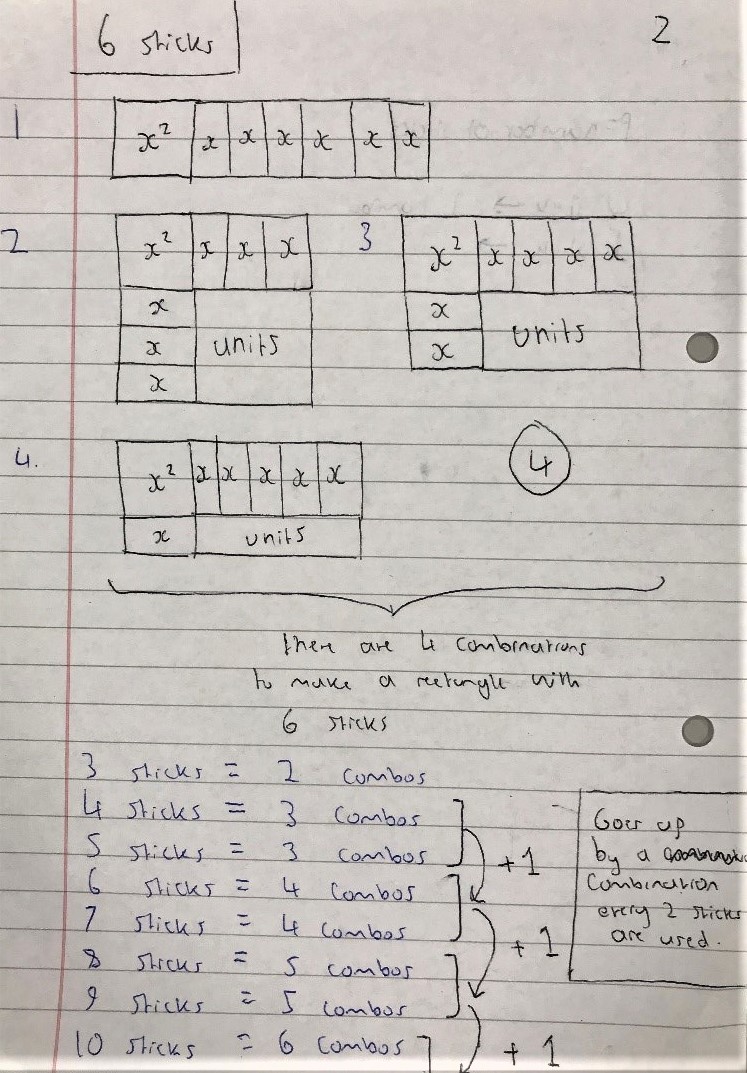 6 sticks
2
1
x² x x x x x x
2
x² x x x
x
x units
x
3
x² x x x x
x
x units
4.
x² x x x x x
x units
4
there are 4 combinations
to make a rectangle with
6 sticks
3 sticks = 2 combos
4 sticks = 3 combos
5 sticks = 3 combos
+1
6 sticks = 4 combos
7 sticks = 4 combos
+1
8 sticks = 5 combos
9 sticks = 5 combos
10 sticks = 6 combos
+1
Goes up
by a
combination
every 2 sticks
are used.